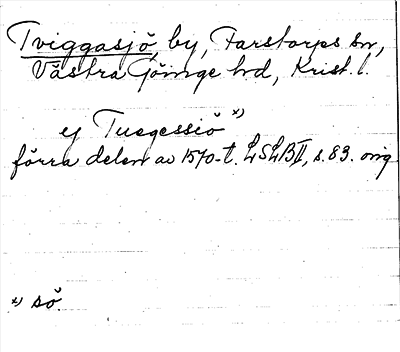 Tviggasjö, by, Farstorps sn,
Västra Göinge hd, Krist. l.
ej Tuegessiö x)
förra delen av 1570-t. LSLB II, s. 83. orig
x) sö.